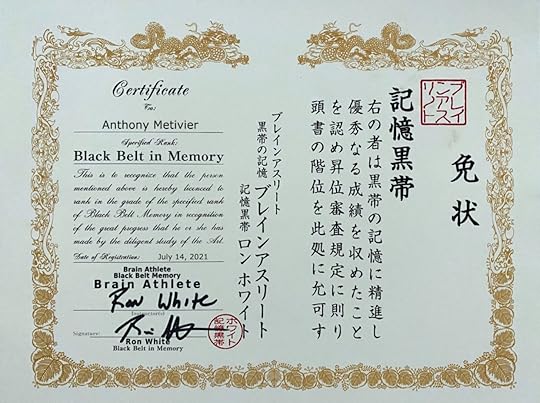 Certificate
To:
Anthony Metivier
Specified Rank:
Black Belt in Memory
This is to recognize that the person
mentioned above is hereby licenced to
rank in the grade of the specified rank
of Black Belt Memory in recognition
of the great progress that he or she has
made by the diligent study of the Art.
Date of Registration: July 14, 2021
Brain Athlete
Black Belt Memory
Brain Athlete
Ron White
Instructor(s)
Signature:
Ron White
Black Belt in Memory
免状
ブレイ
ンアス
リート
記憶黒帯
右の者は黒帯の記憶に精進し
優秀なる成績を収めたこと
を認め昇位審査規定に則り
頭書の階位を此処に允可す
ブレインアスリート
黒帯の記憶 ブレインアスリート
記憶黒帯 ロン ホワイト
ホワイト
記憶黒帯